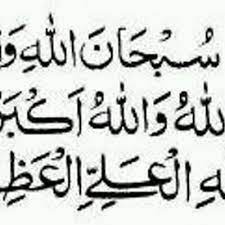 سُبْحَانَ اللهِ وَ
اللهُ وَاللهُ أَكْبَرُ
الْعَلِيِّ الْعَظِ